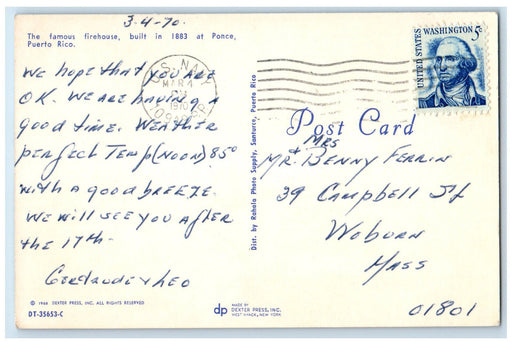 3-4-70.
The famous firehouse, built in 1883 at Ponce,
Puerto Rico.
We hope that you are
OK. We are having a
good time. Weather
perfect Temp (noon) 85°
with a good breeze.
We will see you after
the 17th.
Gertrude & Leo
© 1968 DEXTER PRESS, INC. ALL RIGHTS RESERVED
DT-35653-C
U.S. NAVY
MAR 4
1970
Dist. by Rahola Photo Supply, Santurce, Puerto Rico
dp
MADE BY
DEXTER PRESS, INC.
WEST NYACK, NEW YORK
UNITED STATES
WASHINGTON 5c
Post Card
Mr. + Mrs Benny Ferrin
39 Campbell St
Woburn
Mass
01801